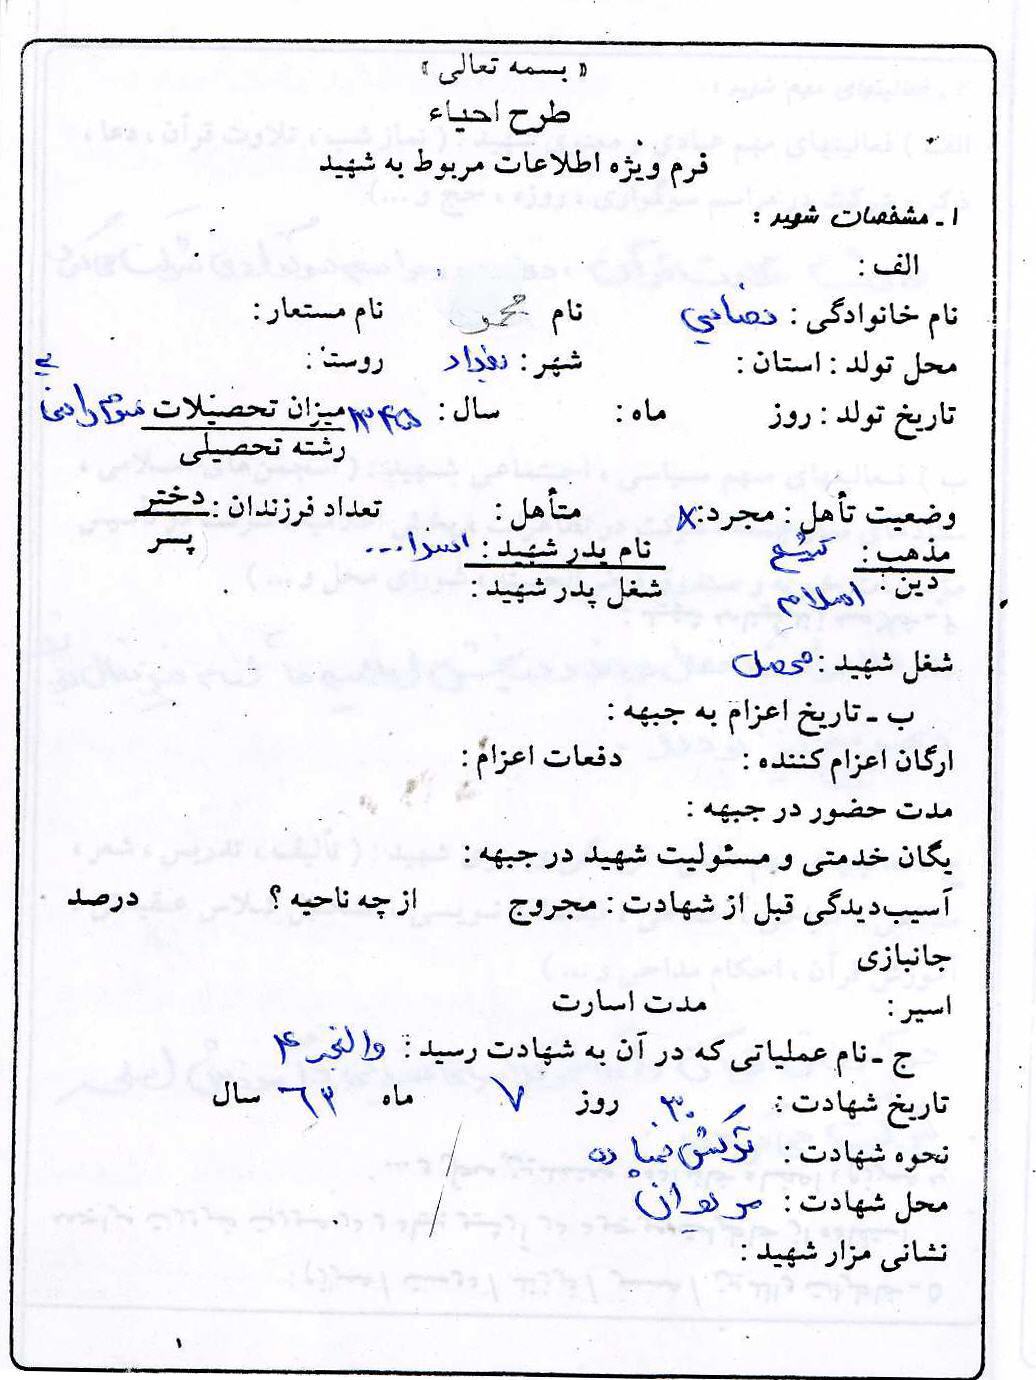 « بسمه تعالی »
طرح احیاء
فرم ویژه اطلاعات مربوط به شهید
۱ ـ مشخصات شهید :
الف :
نام خانوادگی : نام محمود نام مستعار :
محل تولد : استان : شهر : بغداد روستا :
تاریخ تولد : روز ماه : سال : ۱۳۴۵ میزان تحصیلات
رشته تحصیلی
وضعیت تأهل : مجرد : X متأهل : تعداد فرزندان : دختر
پسر
مذهب : تشیع نام پدر شهید : اسدا...
دین : اسلام شغل پدر شهید :
شغل شهید : محصل
ب ـ تاریخ اعزام به جبهه :
ارگان اعزام کننده : دفعات اعزام :
مدت حضور در جبهه :
یگان خدمتی و مسئولیت شهید در جبهه :
آسیب‌دیدگی قبل از شهادت : مجروح از چه ناحیه ؟ درصد
جانبازی
اسیر : مدت اسارت
ج ـ نام عملیاتی که در آن به شهادت رسید : والفجر ۴
تاریخ شهادت : ۳۰ روز ۷ ماه ۶۲ سال
نحوه شهادت : ترکش خمپاره
محل شهادت : مریوان
نشانی مزار شهید :
۱